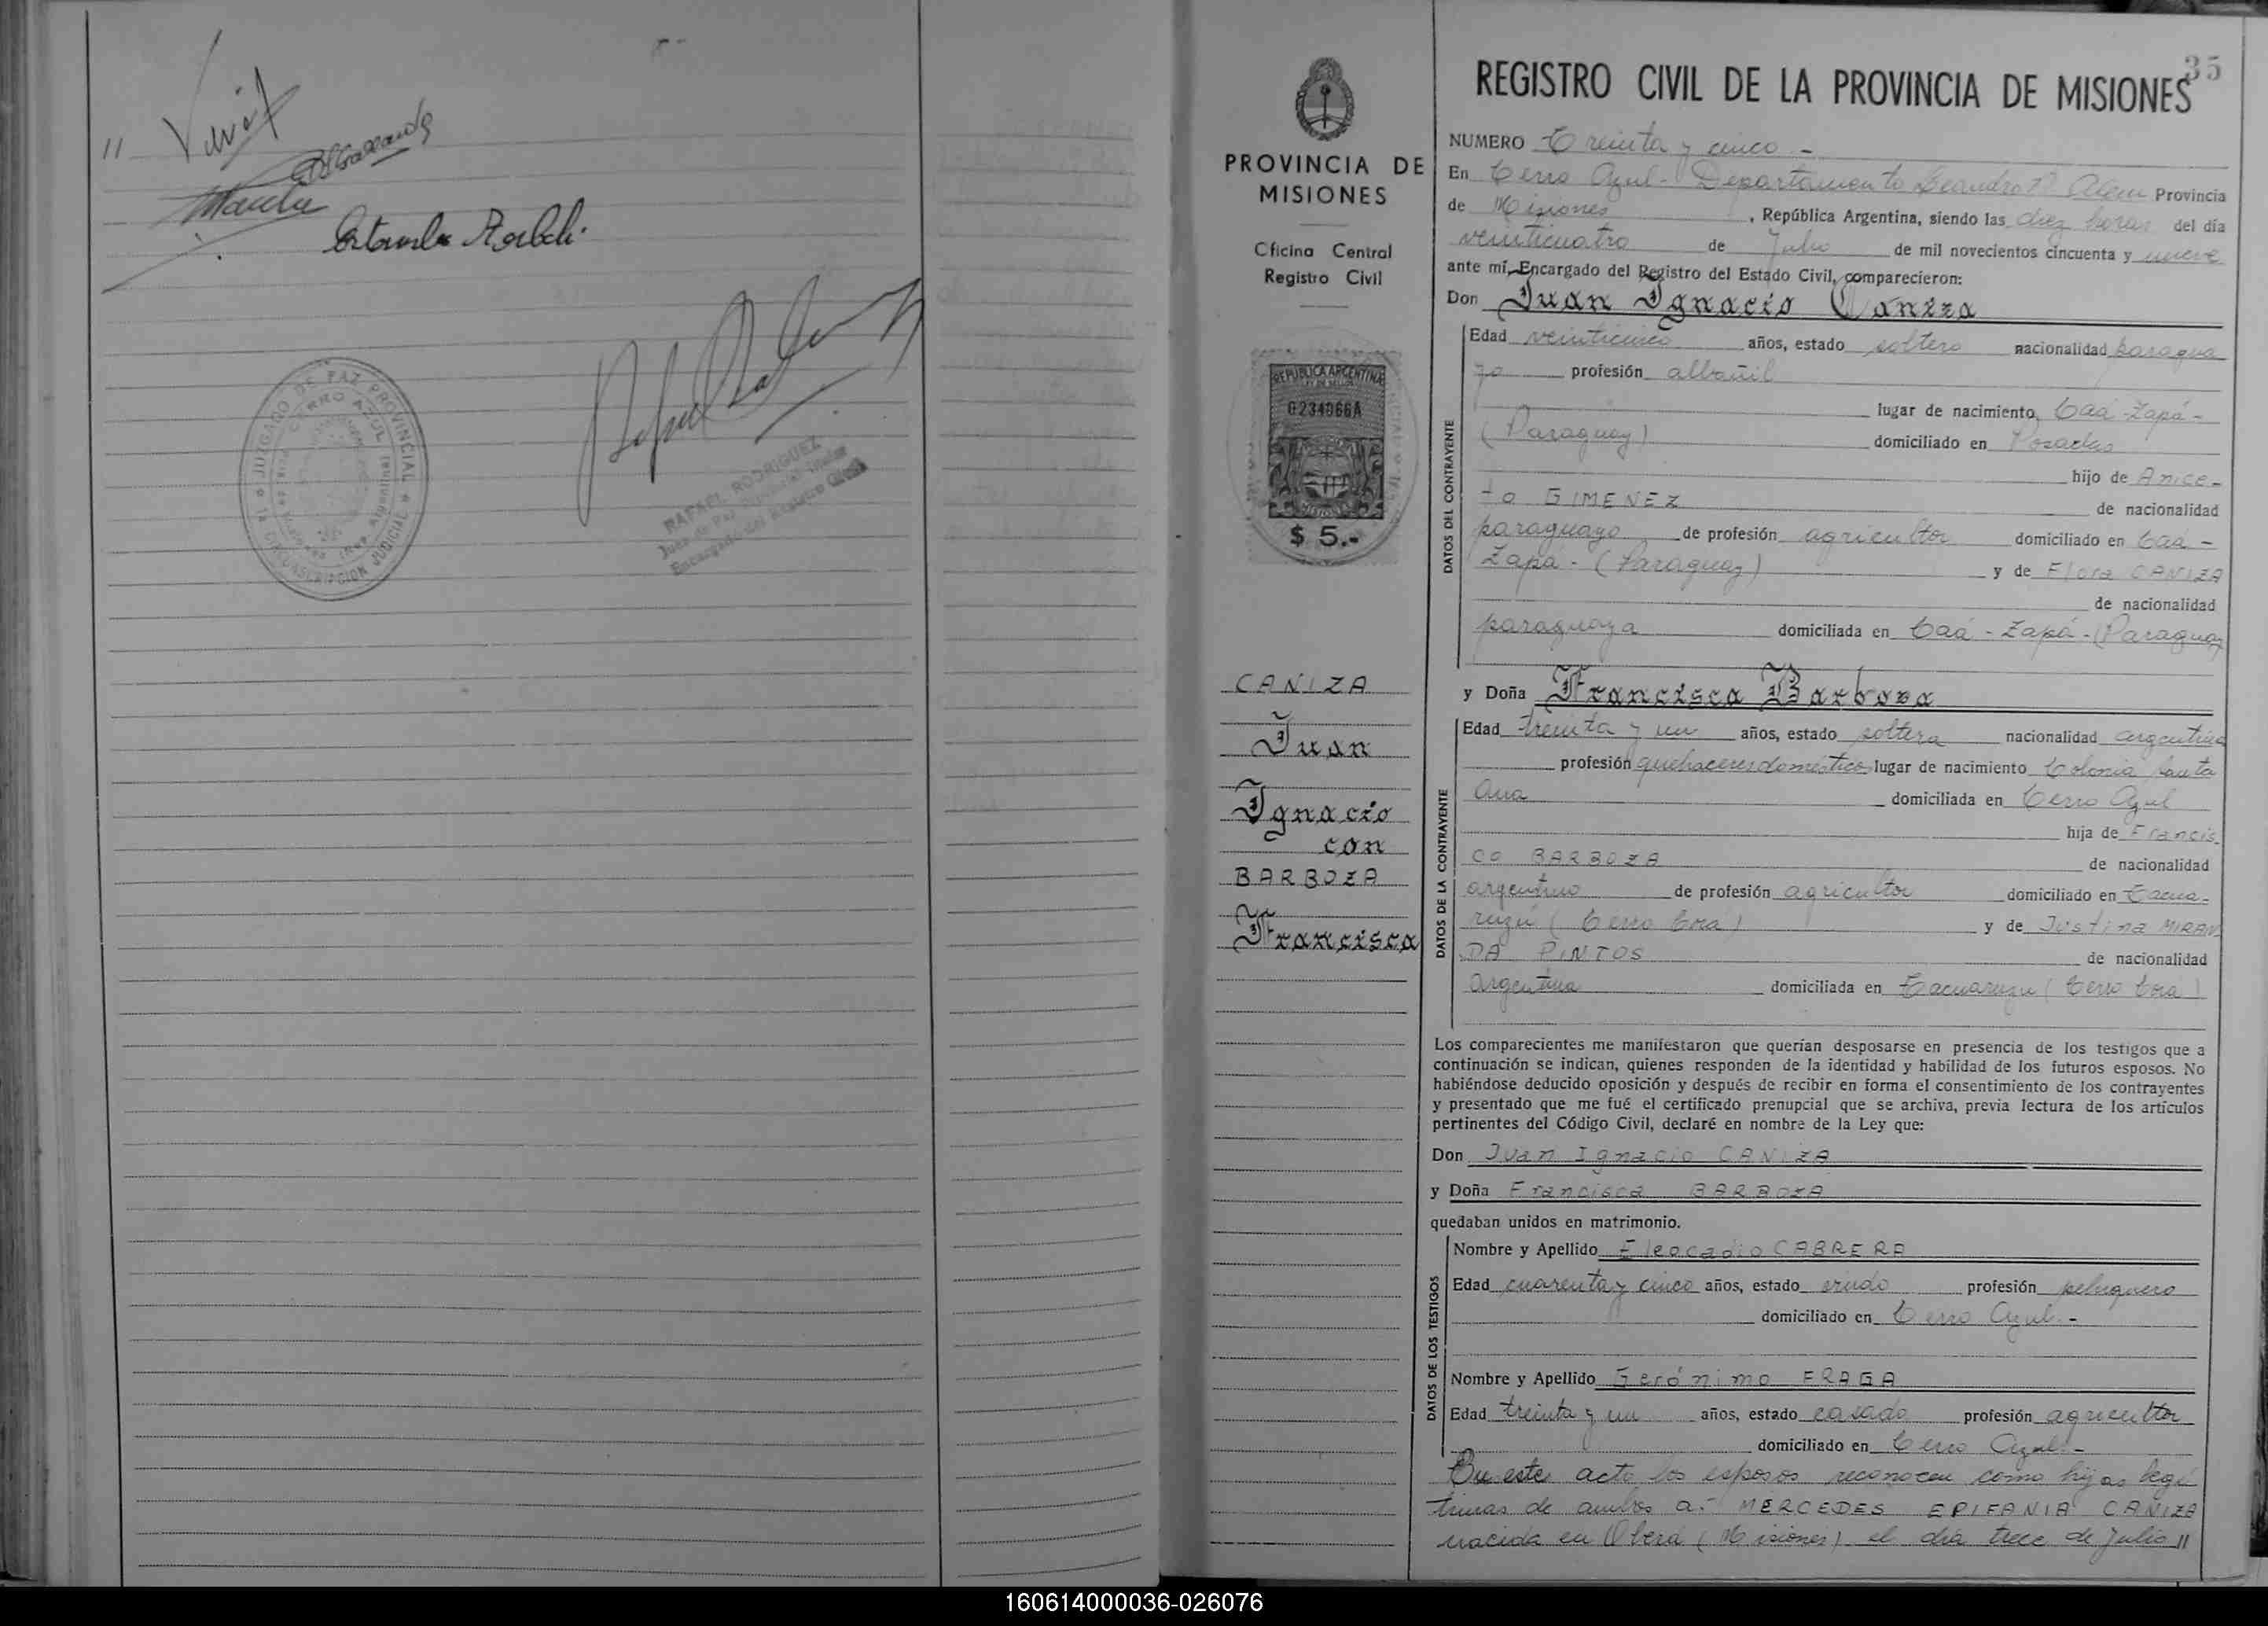 11
RAFAEL RODRIGUEZ
Juez de Paz
Encargado del Registro Civil
JUZGADO DE PAZ PROVINCIAL
CERRO AZUL
1a CIRCUNSCRIPCION JUDICIAL
PROVINCIA DE
MISIONES
Oficina Central
Registro Civil
REPUBLICA ARGENTINA
0234066A
$ 5.-
CANIZA
Juan
Ignacio
con
BARBOZA
Francisca
35
REGISTRO CIVIL DE LA PROVINCIA DE MISIONES
NUMERO Treinta y cinco -
En Cerro Azul - Departamento Leandro N. Alem Provincia
de Misiones, República Argentina, siendo las diez horas del día
veinticuatro de Julio de mil novecientos cincuenta y nueve
ante mí, Encargado del Registro del Estado Civil, comparecieron:
Don Juan Ignacio Caniza
DATOS DEL CONTRAYENTE
Edad veinticinco años, estado soltero nacionalidad paragua
yo profesión albañil
lugar de nacimiento Caá-Zapá-
(Paraguay) domiciliado en Posadas
hijo de Anice-
to GIMENEZ de nacionalidad
paraguayo de profesión agricultor domiciliado en Caá-
Zapá - (Paraguay) y de Flora CANIZA
de nacionalidad
paraguaya domiciliada en Caá-Zapá-(Paraguay
y Doña Francisca Barboza
DATOS DE LA CONTRAYENTE
Edad treinta y un años, estado soltera nacionalidad argentina
profesión quehaceres domésticos lugar de nacimiento Colonia Santa
Ana domiciliada en Cerro Azul
hija de Francis
co BARBOZA de nacionalidad
argentino de profesión agricultor domiciliado en Tacua-
ruzú (Cerro Corá) y de Justina MIRAN
DA PINTOS de nacionalidad
Argentina domiciliada en Tacuaruzu (Cerro Cora)
Los comparecientes me manifestaron que querían desposarse en presencia de los testigos que a
continuación se indican, quienes responden de la identidad y habilidad de los futuros esposos. No
habiéndose deducido oposición y después de recibir en forma el consentimiento de los contrayentes
y presentado que me fué el certificado prenupcial que se archiva, previa lectura de los artículos
pertinentes del Código Civil, declaré en nombre de la Ley que:
Don Juan Ignacio CANIZA
y Doña Francisca BARBOZA
quedaban unidos en matrimonio.
DATOS DE LOS TESTIGOS
Nombre y Apellido Eleocadio CABRERA
Edad cuarenta y cinco años, estado viudo profesión peluquero
domiciliado en Cerro Azul.-
Nombre y Apellido Gerónimo FRAGA
Edad treinta y un años, estado casado profesión agricultor
domiciliado en Cerro Azul.-
En este acto los esposos reconocen como hijas legí
timas de ambos a:- MERCEDES EPIFANIA CAÑIZA
nacida en Oberá (Misiones) el día trece de Julio //
160614000036-026076